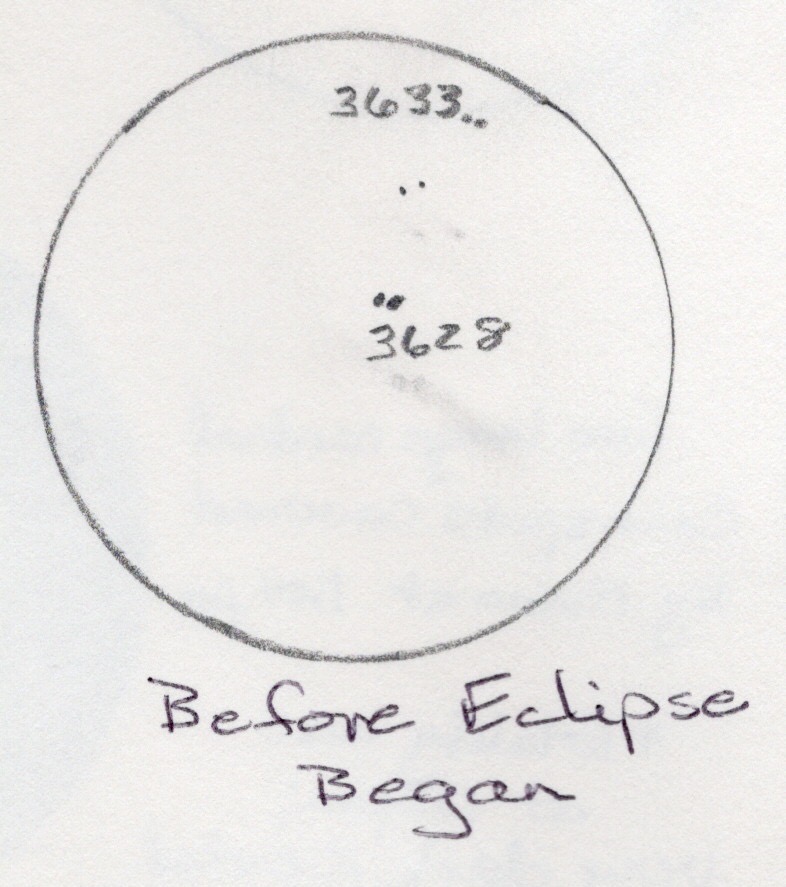 3633
3628
Before Eclipse
Began